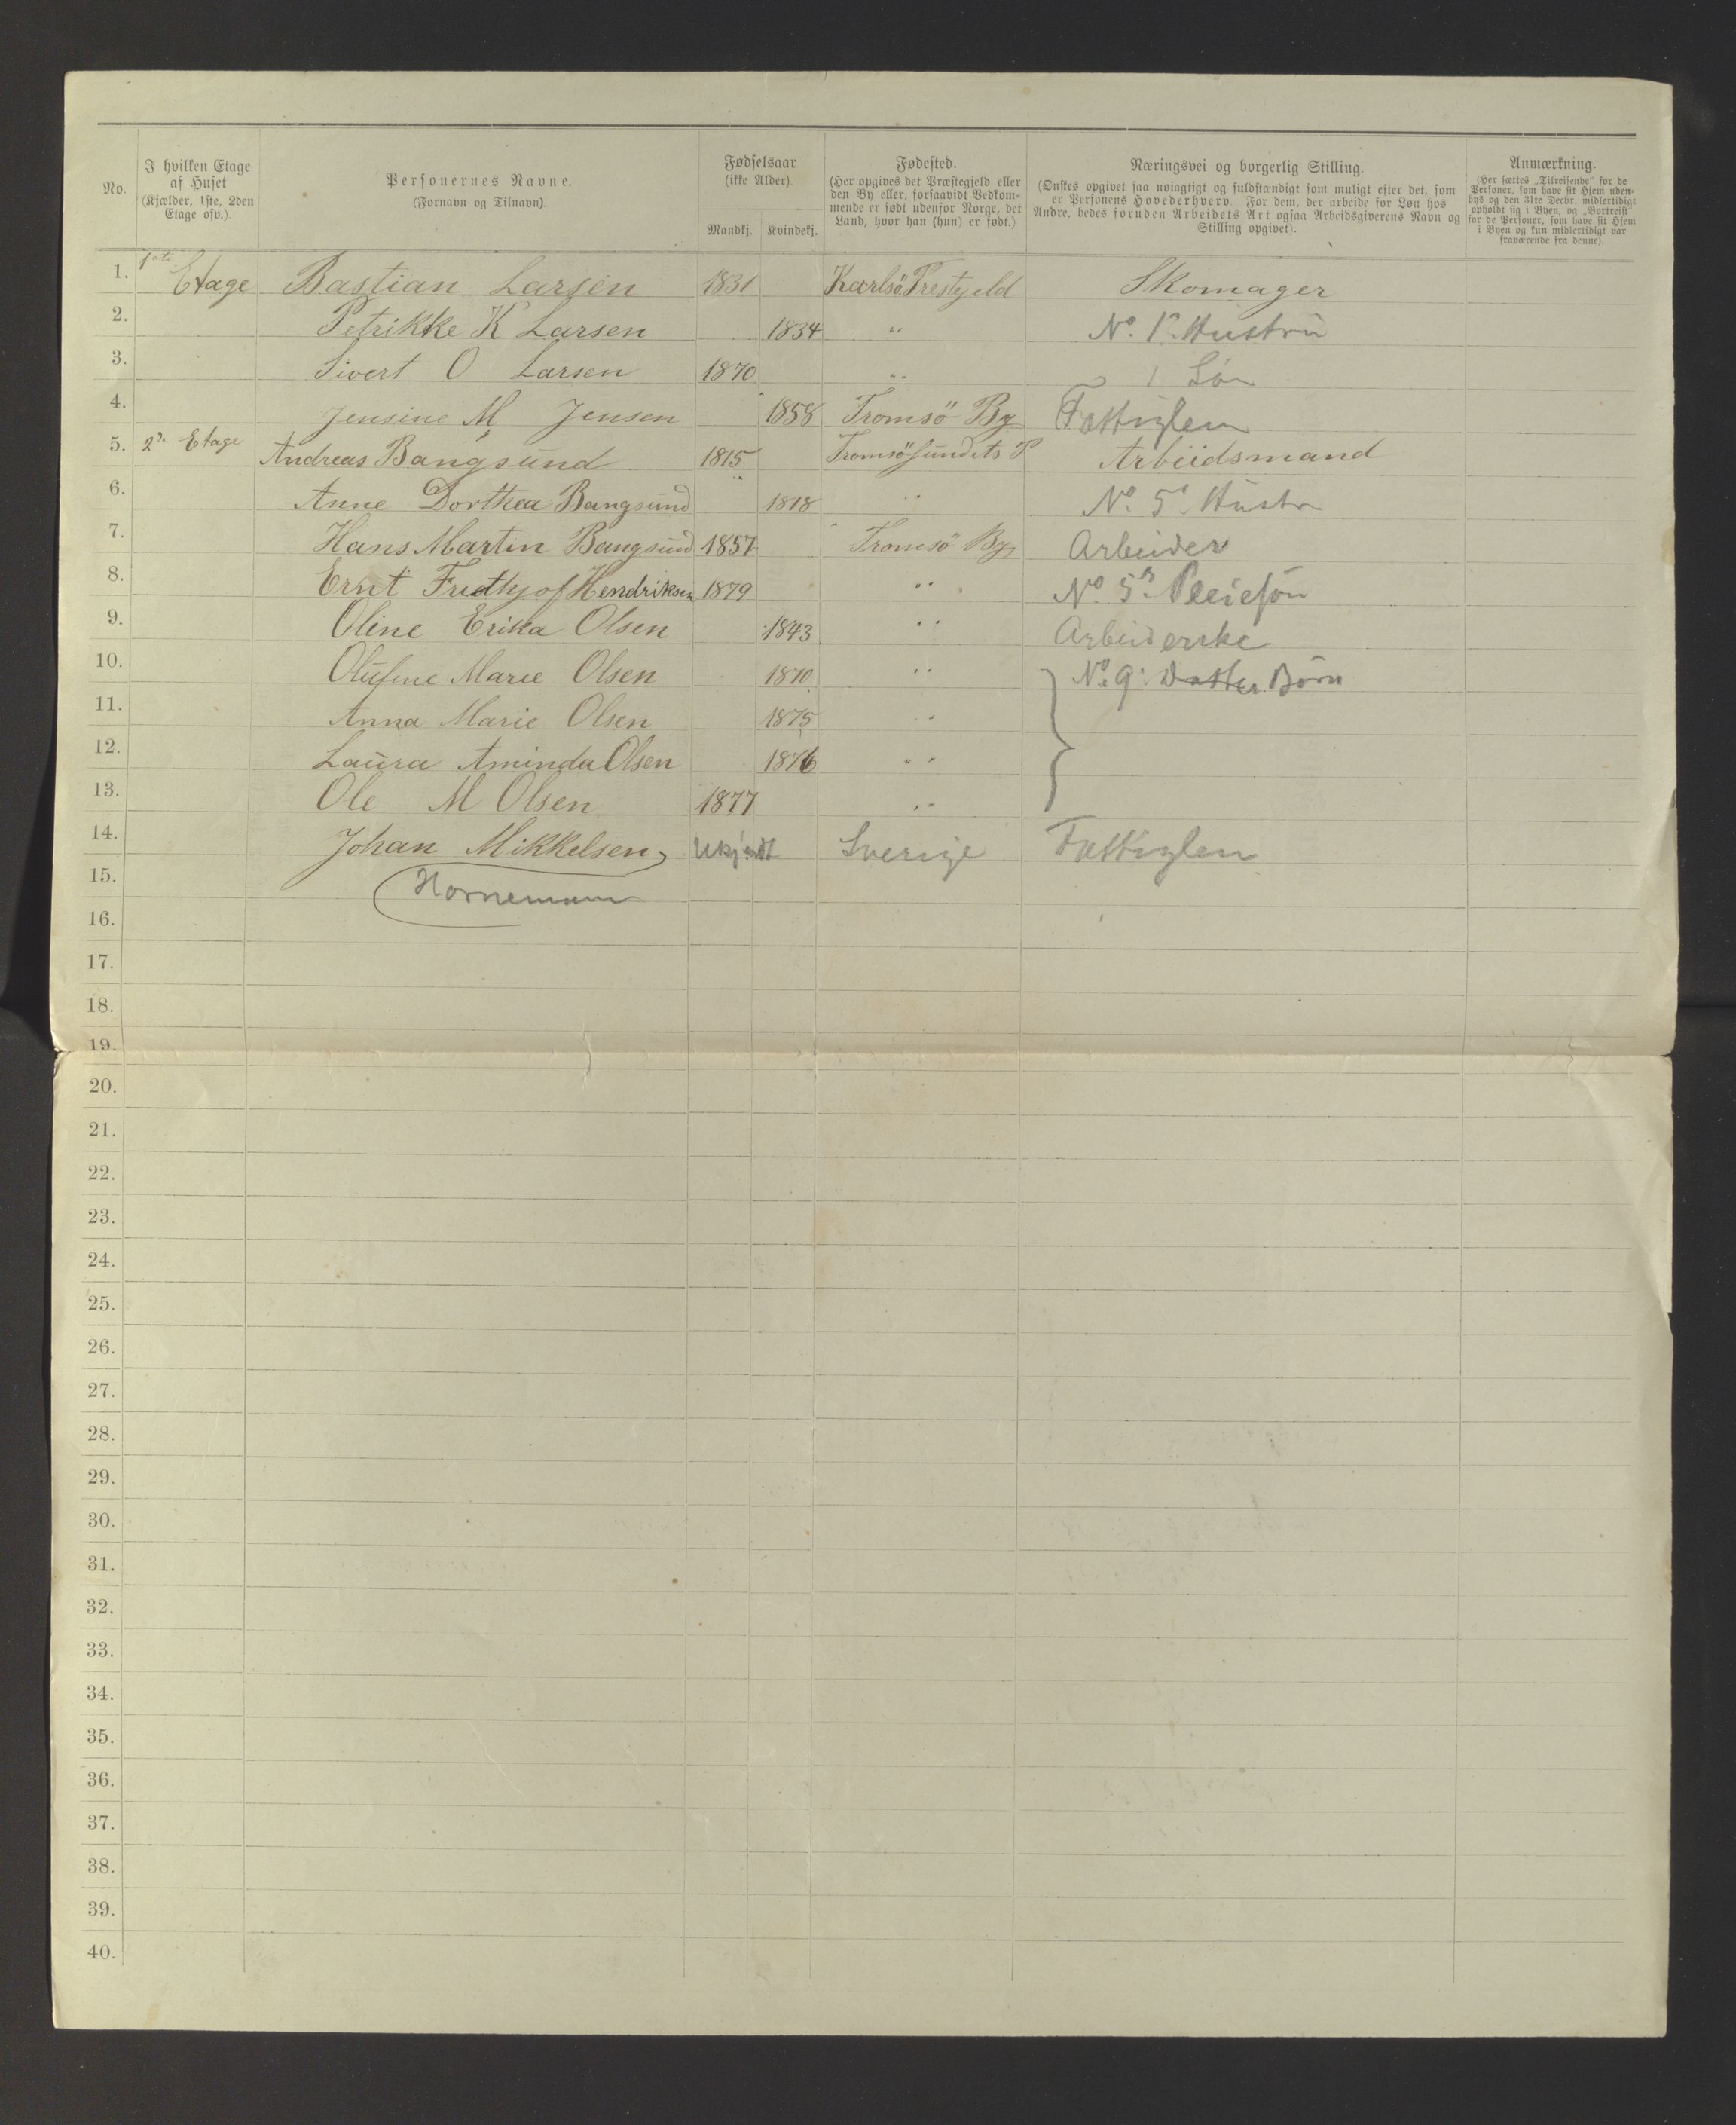 No.
I hvilken Etage
af Huset
(Kjælder, 1ste, 2den
Etage osv.).
Personernes Navne.
(Fornavn og Tilnavn).
Fødselsaar
(ikke Alder).
Mandkj. Kvindekj.
Fødested.
(Her opgives det Præstegjeld eller
den By eller, forsaavidt Vedkom-
mende er født udenfor Norge, det
Land, hvor han (hun) er født.)
Næringsvei og borgerlig Stilling.
(Ønskes opgivet saa nøiagtigt og fuldstændigt som muligt efter det, som
er Personens Hovederhverv. For dem, der arbeide for Løn hos
Andre, bedes foruden Arbeidets Art ogsaa Arbeidsgiverens Navn og
Stilling opgivet).
Anmærkning.
(Her sættes „Tilreisende" for de
Personer, som have sit Hjem uden-
bys og den 31te Decbr. midlertidigt
opholdt sig i Byen, og „Bortreist"
for de Personer, som have sit Hjem
i Byen og kun midlertidigt var
fraværende fra denne).
1. 1ste Etage Bastian Larsen 1831 Karlsö Prestgjeld Skomager
2. Petrikke K Larsen 1834 " No. 1s Hustru
3. Sivert O Larsen 1870 " 1 Søn
4. Jensine M Jensen 1858 Tromsö By Fattiglem
5. 2n Etage Andreas Bangsund 1815 Tromsösundets P Arbeidsmand
6. Anne Dorthea Bangsund 1818 " No. 5s Hustr
7. Hans Martin Bangsund 1857 Tromsö By Arbeider
8. Ernt Fridthjof Hendriksen 1879 " No. 5s Pleiesön
9. Oline Erika Olsen 1843 " Arbeiderske
10. Olufine Marie Olsen 1870 " No. 9s Datter Börn
11. Anna Marie Olsen 1875 "
12. Laura Aminda Olsen 1876 "
13. Ole M Olsen 1877 "
14. Johan Mikkelsen Ukjendt Sverige Fattiglem
15. Hornemann
16.
17.
18.
19.
20.
21.
22.
23.
24.
25.
26.
27.
28.
29.
30.
31.
32.
33.
34.
35.
36.
37.
38.
39.
40.